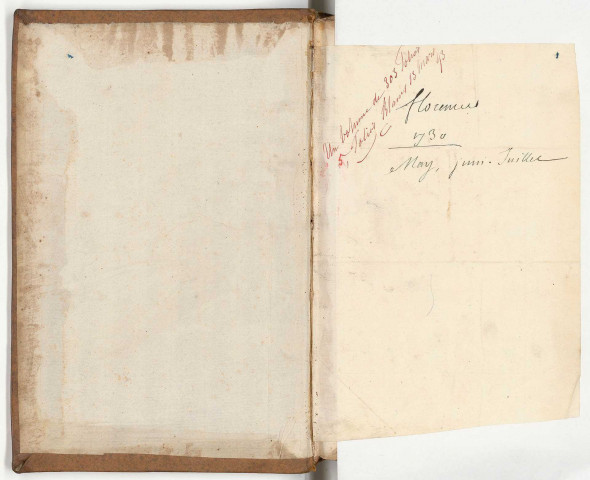 Un volume de 305 folios
5, folios Blancs 13 Mars 93
florence
1730
May, juin. Juillet